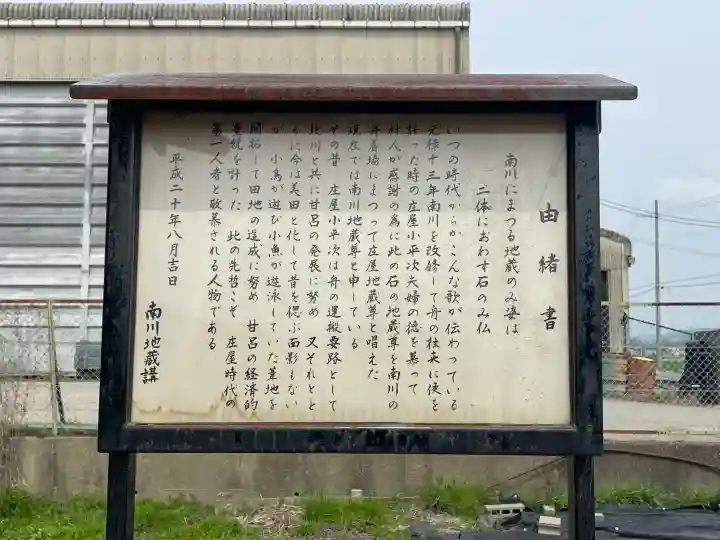 由緒書
南川にまつる地蔵のみ姿は
二体におわす石のみ仏
いつの時代からかこんな歌が伝わっている
元禄十三年南川を改修して舟の往来に便を
計った時の庄屋小平次夫婦の徳を慕って
村人が感謝の為に此の石の地蔵尊を南川の
舟着場にまつって庄屋地蔵尊と唱えた
現在では南川地蔵尊と申している
その昔 庄屋小平次は舟の運搬要路として
此川と共に甘呂の発展に努め 又それとと
もに今は美田と化して昔を偲ぶ面影もない
が 小鳥が遊び小魚が遊泳していた葦地を
開拓して田地の造成に努め 甘呂の経済的
基礎を計った 此の先哲こそ 庄屋時代の
第一人者と敬慕される人物である
平成二十年八月吉日
南川地蔵講